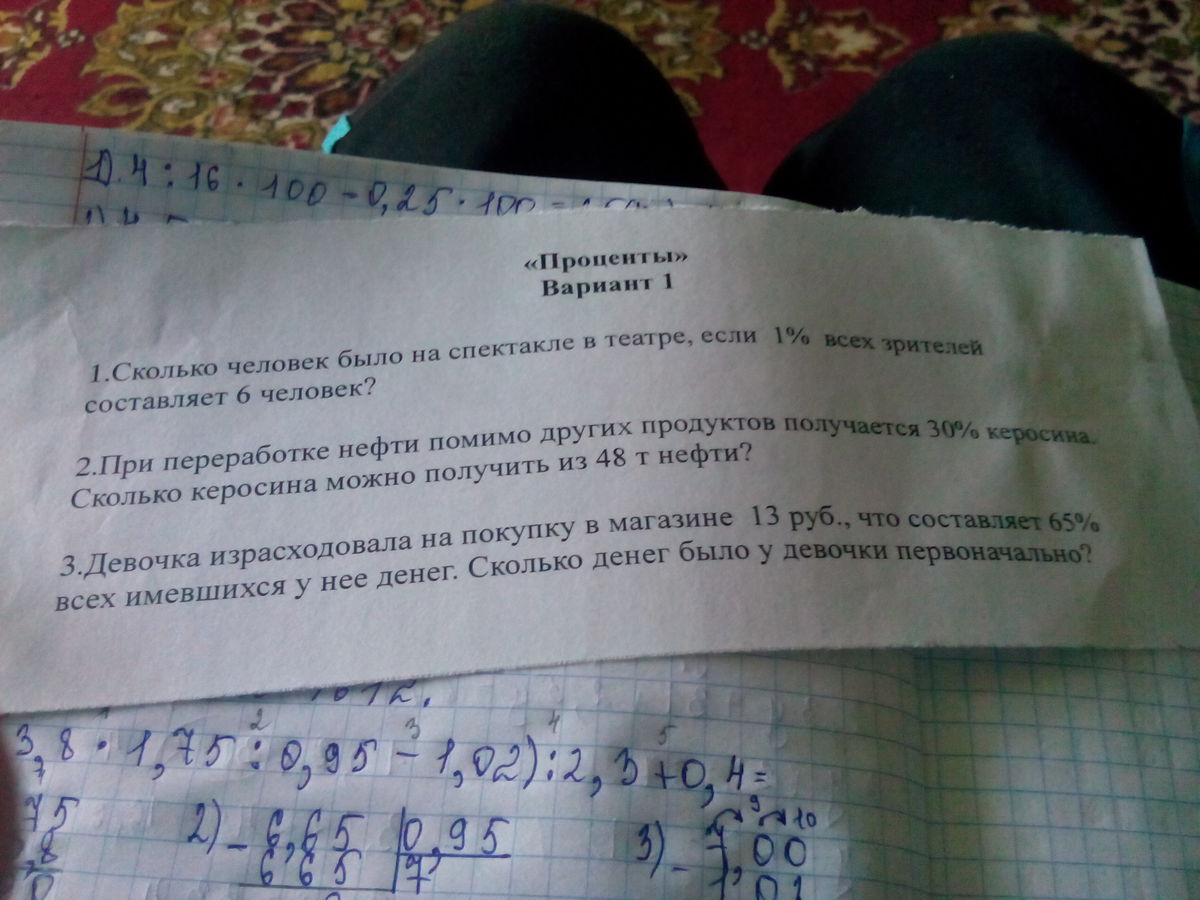 1). 4 : 16 · 100 = 0,25 · 100 =
«Проценты»
Вариант 1
1.Сколько человек было на спектакле в театре, если 1% всех зрителей
составляет 6 человек?
2.При переработке нефти помимо других продуктов получается 30% керосина.
Сколько керосина можно получить из 48 т нефти?
3.Девочка израсходовала на покупку в магазине 13 руб., что составляет 65%
всех имевшихся у нее денег. Сколько денег было у девочки первоначально?
2 3 4 5
3,8 · 1,75 : 0,95 - 1,02) : 2,3 + 0,4 =
75 2) - 6,65 0,95 3) - 7,00
665 7